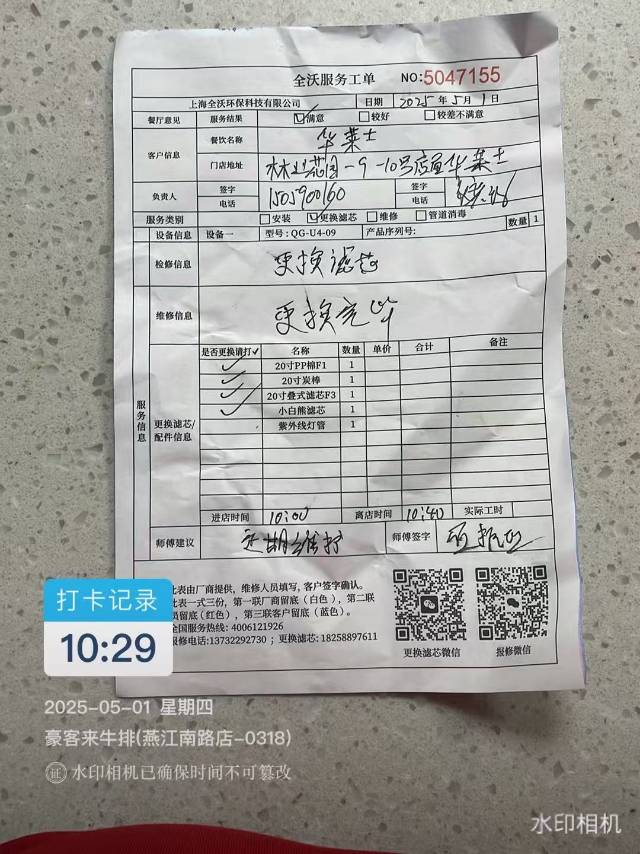 全沃服务工单 NO:5047155
上海全沃环保科技有限公司 日期 2025年5月1日
餐厅意见 服务结果 满意 较好 较差不满意
客户信息 餐饮名称 华莱士
门店地址 林业花园-9-10号店面华莱士
负责人 签字 电话 1505900160 签字 电话
服务类别 安装 更换滤芯 维修 管道消毒 数量 1
设备信息 设备一 型号: QG-U4-09 产品序列号:
检修信息 更换滤芯
维修信息 更换完毕
服务信息
更换滤芯/配件信息
是否更换请打✓ 名称 数量 单价 合计 备注
✓ 20寸PP棉F1 1
✓ 20寸炭棒 1
✓ 20寸叠式滤芯F3 1
✓ 小白熊滤芯 1
紫外线灯管 1
进店时间 10:00 离店时间 10:40 实际工时
师傅建议 定期维护 师傅签字
此表由厂商提供，维修人员填写，客户签字确认。
此表一式三份，第一联厂商留底（白色），第二联
员留底（红色），第三联客户留底（蓝色）。
全国服务热线: 4006121926
报修电话:13732292730 ；更换滤芯: 18258897611
更换滤芯微信 报修微信
打卡记录
10:29
2025-05-01 星期四
豪客来牛排(燕江南路店-0318)
证 水印相机已确保时间不可篡改
水印相机